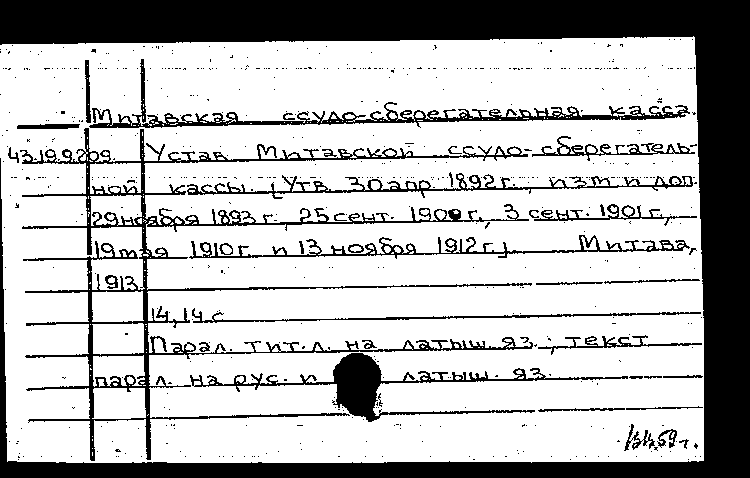 Митавская ссудо-сберегательная касса.
43.19.9.209 Устав Митавской ссудо-сберегатель-
ной кассы [Утв. 30 апр. 1892 г., изм и доп.
29 ноября 1893 г., 25 сент. 1900 г., 3 сент. 1901 г.,
19 мая 1910 г. и 13 ноября 1912 г.] Митава,
1913.
14, 14 с
Парал. тит. л. на латыш. яз.; текст
парал. на рус. и латыш. яз.